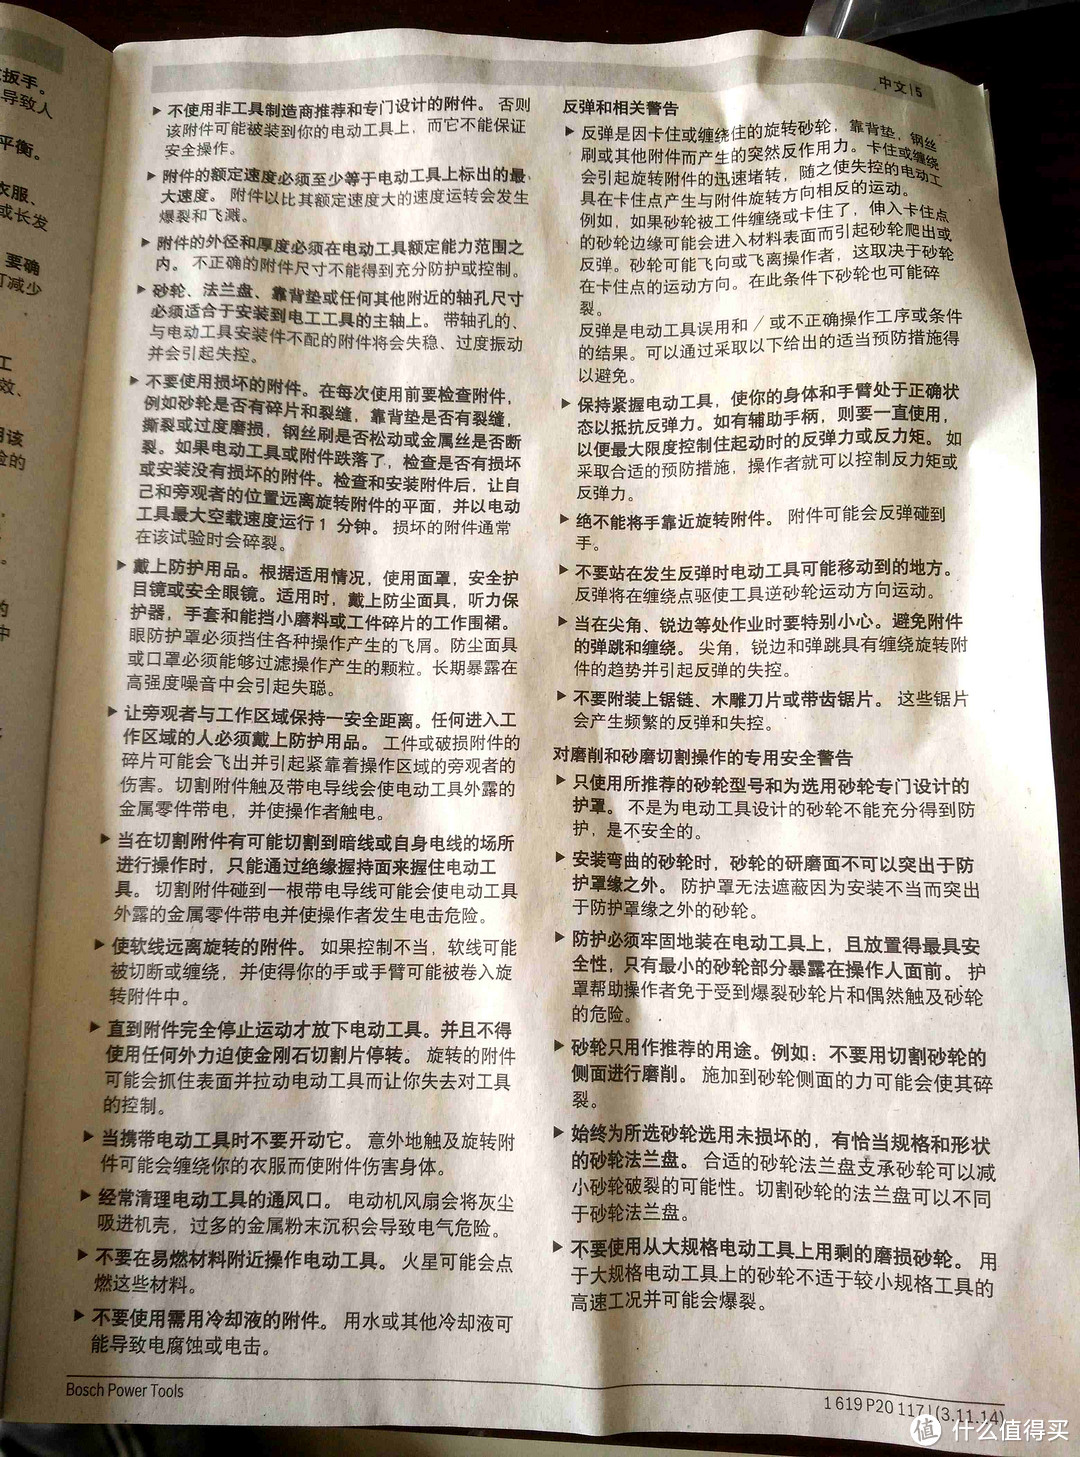 扳手。
导致人
平衡。
衣服、
或长发
要确
可减少
工
效、
用该
险的
的
中
中文 | 5
▶ 不使用非工具制造商推荐和专门设计的附件。 否则
该附件可能被装到你的电动工具上，而它不能保证
安全操作。
▶ 附件的额定速度必须至少等于电动工具上标出的最
大速度。 附件以比其额定速度大的速度运转会发生
爆裂和飞溅。
▶ 附件的外径和厚度必须在电动工具额定能力范围之
内。 不正确的附件尺寸不能得到充分防护或控制。
▶ 砂轮、法兰盘、靠背垫或任何其他附近的轴孔尺寸
必须适合于安装到电工工具的主轴上。 带轴孔的、
与电动工具安装件不配的附件将会失稳、过度振动
并会引起失控。
▶ 不要使用损坏的附件。在每次使用前要检查附件，
例如砂轮是否有碎片和裂缝，靠背垫是否有裂缝，
撕裂或过度磨损，钢丝刷是否松动或金属丝是否断
裂。如果电动工具或附件跌落了，检查是否有损坏
或安装没有损坏的附件。检查和安装附件后，让自
己和旁观者的位置远离旋转附件的平面，并以电动
工具最大空载速度运行 1 分钟。 损坏的附件通常
在该试验时会碎裂。
▶ 戴上防护用品。根据适用情况，使用面罩，安全护
目镜或安全眼镜。适用时，戴上防尘面具，听力保
护器，手套和能挡小磨料或工件碎片的工作围裙。
眼防护罩必须挡住各种操作产生的飞屑。防尘面具
或口罩必须能够过滤操作产生的颗粒。长期暴露在
高强度噪音中会引起失聪。
▶ 让旁观者与工作区域保持一安全距离。任何进入工
作区域的人必须戴上防护用品。 工件或破损附件的
碎片可能会飞出并引起紧靠着操作区域的旁观者的
伤害。切割附件触及带电导线会使电动工具外露的
金属零件带电，并使操作者触电。
▶ 当在切割附件有可能切割到暗线或自身电线的场所
进行操作时，只能通过绝缘握持面来握住电动工
具。 切割附件碰到一根带电导线可能会使电动工具
外露的金属零件带电并使操作者发生电击危险。
▶ 使软线远离旋转的附件。 如果控制不当，软线可能
被切断或缠绕，并使得你的手或手臂可能被卷入旋
转附件中。
▶ 直到附件完全停止运动才放下电动工具。并且不得
使用任何外力迫使金刚石切割片停转。 旋转的附件
可能会抓住表面并拉动电动工具而让你失去对工具
的控制。
▶ 当携带电动工具时不要开动它。 意外地触及旋转附
件可能会缠绕你的衣服而使附件伤害身体。
▶ 经常清理电动工具的通风口。 电动机风扇会将灰尘
吸进机壳，过多的金属粉末沉积会导致电气危险。
▶ 不要在易燃材料附近操作电动工具。 火星可能会点
燃这些材料。
▶ 不要使用需用冷却液的附件。 用水或其他冷却液可
能导致电腐蚀或电击。
反弹和相关警告
▶ 反弹是因卡住或缠绕住的旋转砂轮，靠背垫，钢丝
刷或其他附件而产生的突然反作用力。卡住或缠绕
会引起旋转附件的迅速堵转，随之使失控的电动工
具在卡住点产生与附件旋转方向相反的运动。
例如，如果砂轮被工件缠绕或卡住了，伸入卡住点
的砂轮边缘可能会进入材料表面而引起砂轮爬出或
反弹。砂轮可能飞向或飞离操作者，这取决于砂轮
在卡住点的运动方向。在此条件下砂轮也可能碎
裂。
反弹是电动工具误用和 / 或不正确操作工序或条件
的结果。可以通过采取以下给出的适当预防措施得
以避免。
▶ 保持紧握电动工具，使你的身体和手臂处于正确状
态以抵抗反弹力。如有辅助手柄，则要一直使用，
以便最大限度控制住起动时的反弹力或反力矩。 如
采取合适的预防措施，操作者就可以控制反力矩或
反弹力。
▶ 绝不能将手靠近旋转附件。 附件可能会反弹碰到
手。
▶ 不要站在发生反弹时电动工具可能移动到的地方。
反弹将在缠绕点驱使工具逆砂轮运动方向运动。
▶ 当在尖角、锐边等处作业时要特别小心。避免附件
的弹跳和缠绕。 尖角，锐边和弹跳具有缠绕旋转附
件的趋势并引起反弹的失控。
▶ 不要附装上锯链、木雕刀片或带齿锯片。 这些锯片
会产生频繁的反弹和失控。
对磨削和砂磨切割操作的专用安全警告
▶ 只使用所推荐的砂轮型号和为选用砂轮专门设计的
护罩。 不是为电动工具设计的砂轮不能充分得到防
护，是不安全的。
▶ 安装弯曲的砂轮时，砂轮的研磨面不可以突出于防
护罩缘之外。 防护罩无法遮蔽因为安装不当而突出
于防护罩缘之外的砂轮。
▶ 防护必须牢固地装在电动工具上，且放置得最具安
全性，只有最小的砂轮部分暴露在操作人面前。 护
罩帮助操作者免于受到爆裂砂轮片和偶然触及砂轮
的危险。
▶ 砂轮只用作推荐的用途。例如：不要用切割砂轮的
侧面进行磨削。 施加到砂轮侧面的力可能会使其碎
裂。
▶ 始终为所选砂轮选用未损坏的，有恰当规格和形状
的砂轮法兰盘。 合适的砂轮法兰盘支承砂轮可以减
小砂轮破裂的可能性。切割砂轮的法兰盘可以不同
于砂轮法兰盘。
▶ 不要使用从大规格电动工具上用剩的磨损砂轮。 用
于大规格电动工具上的砂轮不适于较小规格工具的
高速工况并可能会爆裂。
Bosch Power Tools
1 619 P20 117 | (3.11.14)
值 什么值得买